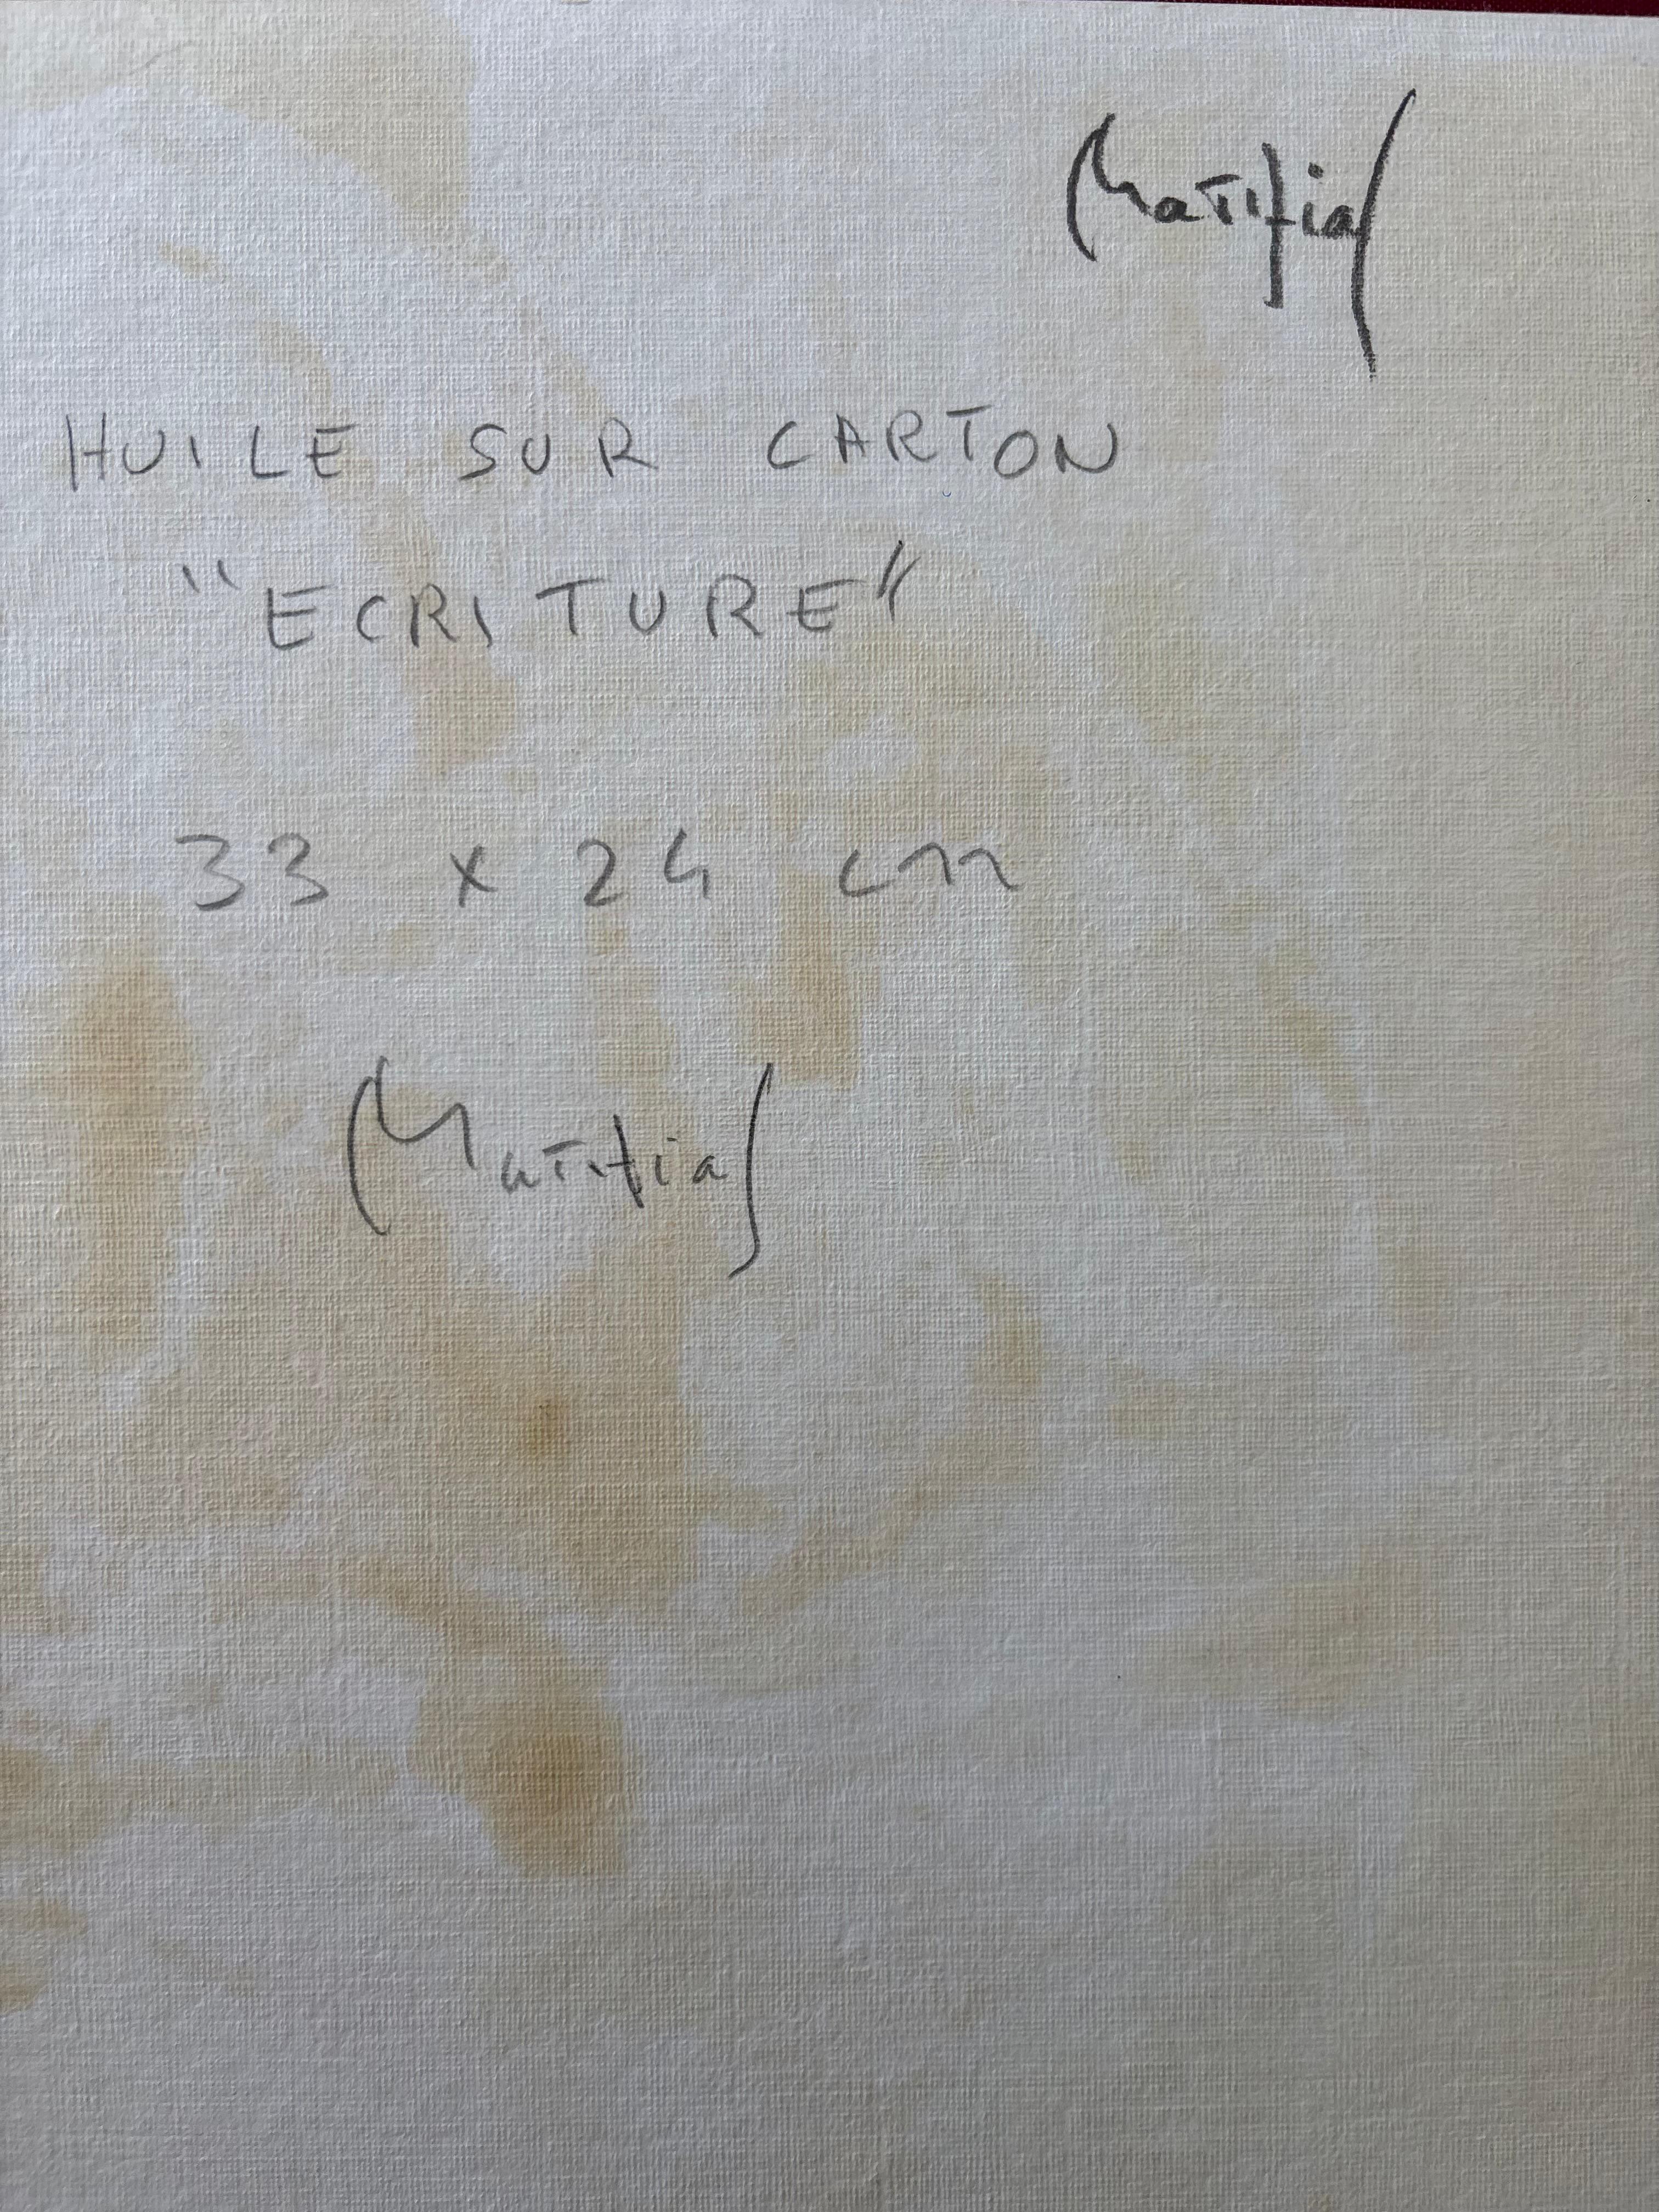 Matifia
HUILE SUR CARTON
"ECRITURE"
33 x 24 cm
Matifia